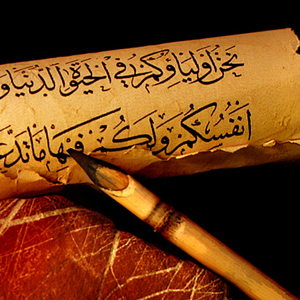 نَحْنُ أَوْلِيَاؤُكُمْ فِي الْحَيٰوةِ الدُّنْيَا وَ
أَنْفُسُكُمْ وَلَكُمْ فِيهَا مَا تَدَّعُ